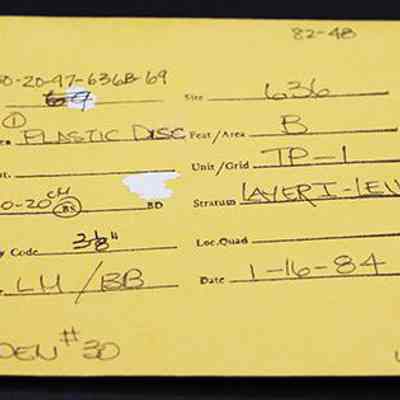 82-48
0-20-97-636B-69
69 Site 636
① PLASTIC DISC Feat/Area B
Unit/Grid TP-1
0-20 CM BS BD Stratum LAYER I-LEV
y Code 3/8" Loc.Quad
LM/BB Date 1-16-84
DEN #30